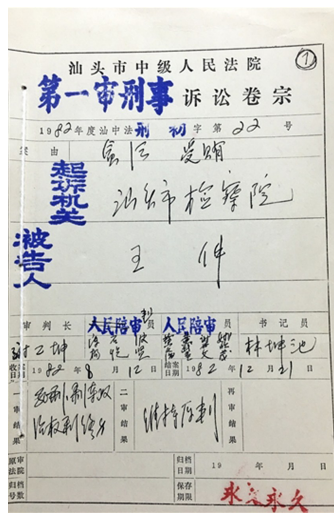 ①
汕头市中级人民法院
第一审刑事诉讼卷宗
1982年度汕中法刑初字第22号
案由 贪污 受贿
起诉机关 汕头市检察院
被告人 王仲
审判长 人民陪审员 人民陪审员 书记员
林坤池
收案日期 1982年8月12日 结案日期 1982年12月21日
一审结果 死刑 剥夺政治权利终身
二审结果 维持原判
再审结果
原审法院 归档日期 19 年 月 日
归档号数 保存期限 永久